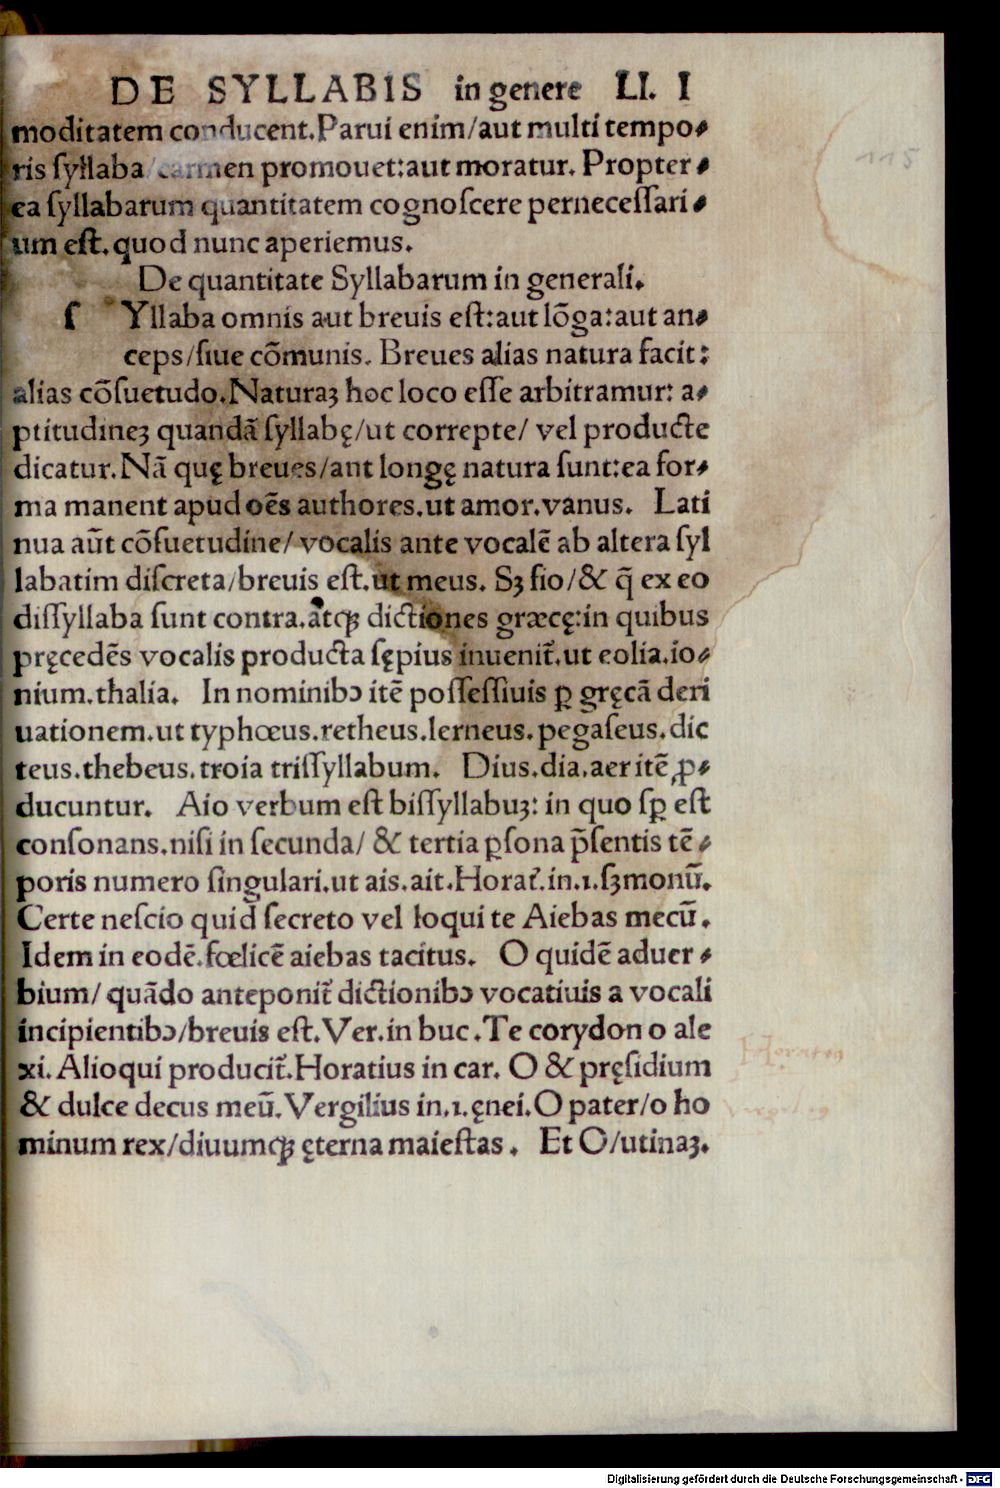 DE SYLLABIS in genere LI. I
115
moditatem conducent.Parui enim/aut multi tempo⸗
ris ſyllaba/carmen promouet:aut moratur. Propter⸗
ea ſyllabarum quantitatem cognoſcere perneceſſari⸗
um eſt.quod nunc aperiemus.
De quantitate Syllabarum in generali.
ſ Yllaba omnis aut breuis eſt:aut lõga:aut an⸗
ceps/ſiue cõmunis. Breues alias natura facit:
alias cõſuetudo.Naturaꝫ hoc loco eſſe arbitramur: a⸗
ptitudineꝫ quandã ſyllabę/ut correpte/ vel producte
dicatur.Nã quę breues/ant longę natura ſunt:ea for⸗
ma manent apud oẽs authores.ut amor.vanus. Lati
nua aũt cõſuetudine/ vocalis ante vocalẽ ab altera ſyl
labatim diſcreta/breuis eſt.ut meus. Sꝫ fio/& q̃ ex eo
diſſyllaba ſunt contra.atqꝫ dictiones græcę:in quibus
pręcedẽs vocalis producta ſępius inuenit᷑.ut eolia.io⸗
nium.thalia. In nominibꝰ itẽ poſſeſſiuis ꝑ gręcã deri
uationem.ut typhœus.retheus.lerneus.pegaſeus.dic
teus.thebeus.troia triſſyllabum. Dius.dia.aer itẽ ꝓ⸗
ducuntur. Aio verbum eſt biſſyllabuꝫ: in quo ſꝑ eſt
conſonans.niſi in ſecunda/ & tertia ꝑſona p̃ſentis tẽ⸗
poris numero ſingulari.ut ais.ait.Horat᷑.in.1.ſꝫmonũ.
Certe neſcio quid ſecreto vel loqui te Aiebas mecũ.
Idem in eodẽ.fœlicẽ aiebas tacitus. O quidẽ aduer⸗
bium/ quãdo anteponit᷑ dictionibꝰ vocatiuis a vocali
incipientibꝰ/breuis eſt.Ver.in buc.Te corydon o ale
xi. Alioqui producit᷑.Horatius in car. O & pręſidium
& dulce decus meũ.Vergilius in.1.ęnei.O pater/o ho
minum rex/diuumqꝫ ęterna maieſtas. Et O/utinaꝫ.
Digitalisierung gefördert durch die Deutsche Forschungsgemeinschaft - DFG